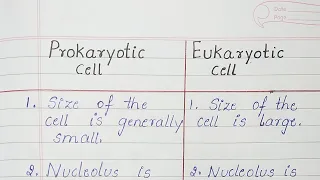 Date
Page
Prokaryotic
Cell
Eukaryotic
Cell
1. Size of the
cell is generally
small.
1. Size of the
cell is large.
2. Nucleolus is
2. Nucleolus is